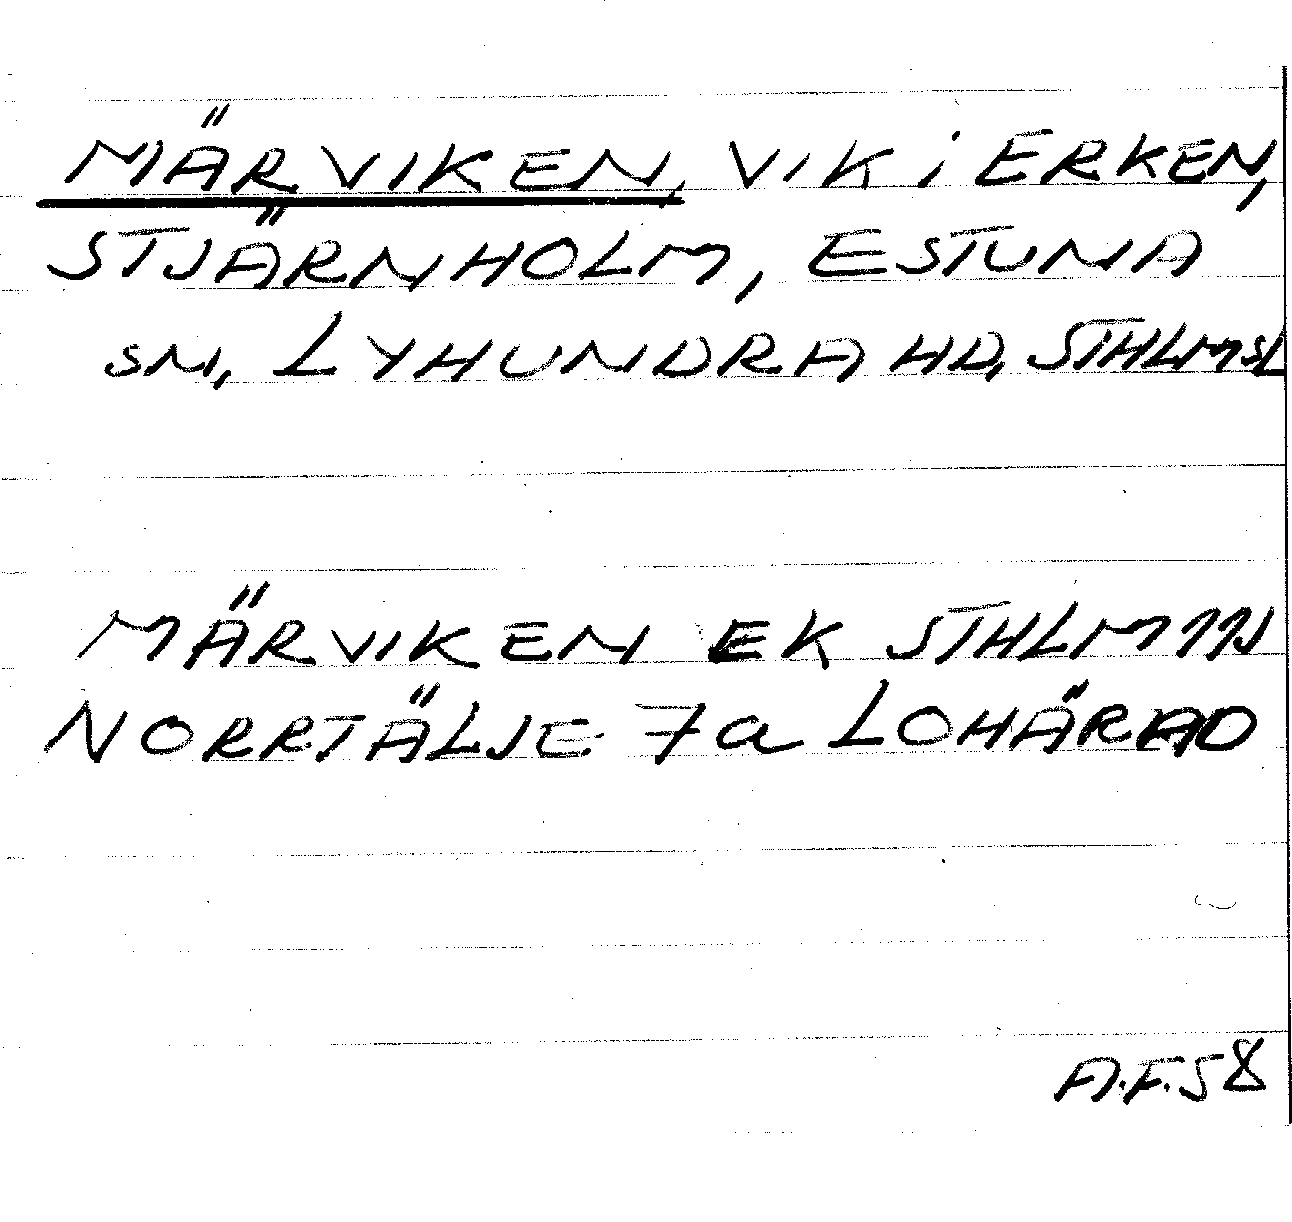 MÄRVIKEN, VIK i ERKEN,
STJÄRNHOLM, ESTUNA
SN, LYHUNDRA HD, STHLMSL
MÄRVIKEN EK STHLM
NORRTÄLJE 7a LOHÄRAD
A.F.58